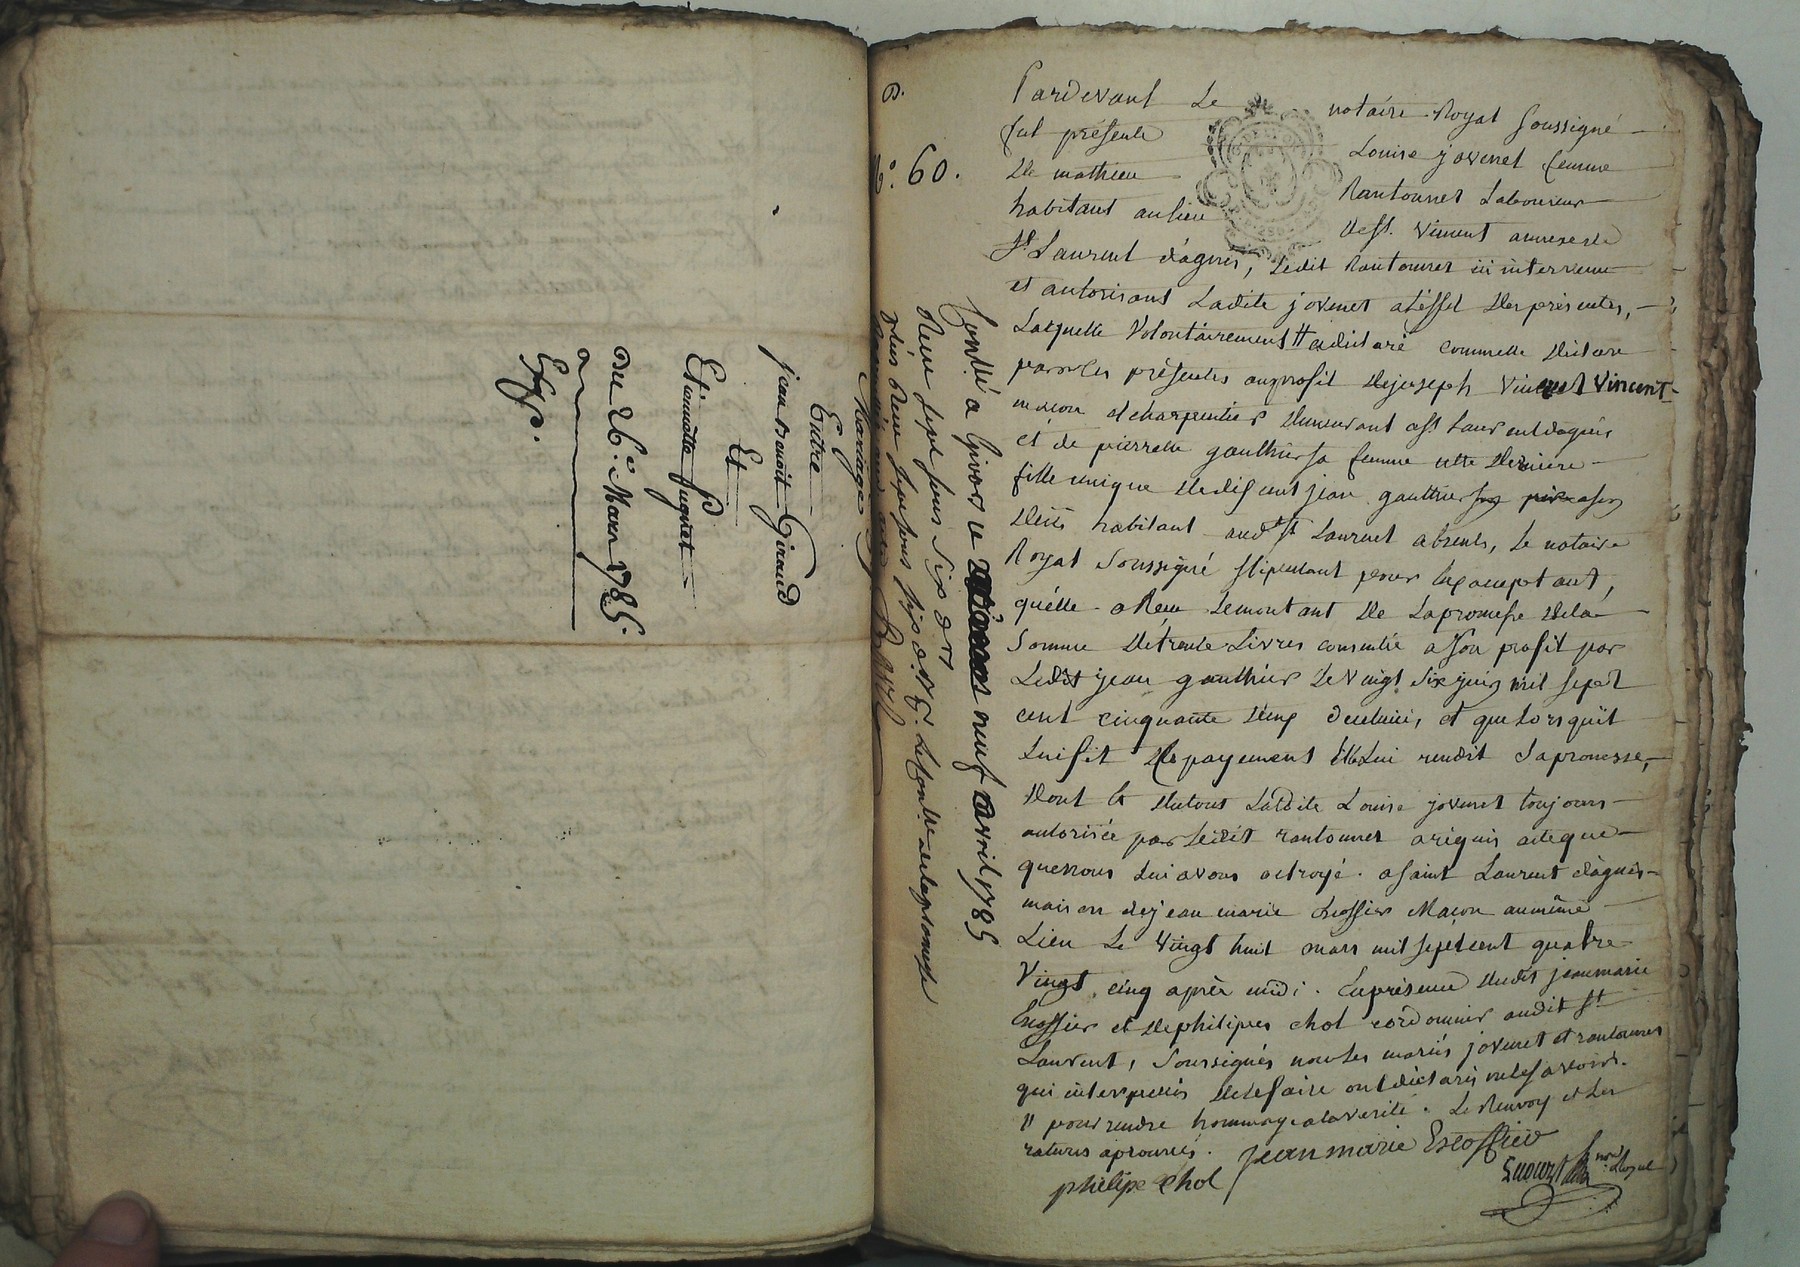 Mariage
Entre
jean Benoit Giraud
Et
Etiennette fuguet
Du 26e. Mars 1785.
Exp.
B.
No. 60.
Pardevant Le notaire Royal soussigné
fut présente Louise jovenet femme
de mathieu Rantonnet Laboureur
habitant au lieu de st. Vincent annexe de
st Laurent d'agnis, Ledit Rantonnet ici intervenu
et autorisant Ladite jovenet a l'effet des présentes,
Laquelle Volontairement # a déclaré comm'elle déclare
par Les présentes au profit de joseph Vincent Vincent
maçon et charpentier demeurant a st. Laurent dagnis
et de pierrette gauthier sa femme cette dernière
fille unique de defunt jean gauthier
habitant aud. st Laurent absents, Le notaire
Royal soussigné stipulant pour eux acceptant,
qu'elle a Reçu Le montant de La promesse de la
somme de trente Livres consentie a son profit par
Ledit jean gauthier Le Vingt six juin mil sept
cent cinquante deux, et que Lorsqu'il
Lui fit Le payement elle Lui rendit sa promesse,
dont et du tout Ladite Louise jovenet toujours
autorisée par Ledit rantonnet a réquis acte que
que nous Lui avons octroyé. a saint Laurent d'agnis
maison de jean marie Escoffier Maçon au même
Lieu Le Vingt huit mars mil sept cent quatre
Vingt cinq après midi. En présence dudit jean marie
Escoffier et de philipes chol cordonnier audit st
Laurent, soussignés non Les mariés jovenet et rantonnet
qui interpellés de le faire ont déclarés ne le savoir.
# pour rendre hommage a la verité. Le Renvoy et Les
ratures aprouvés. jean marie Escoffier
philipe Chol
nore. Royal
Contlé a Givors le neuf avril 1785
Reçu sept sous six drs